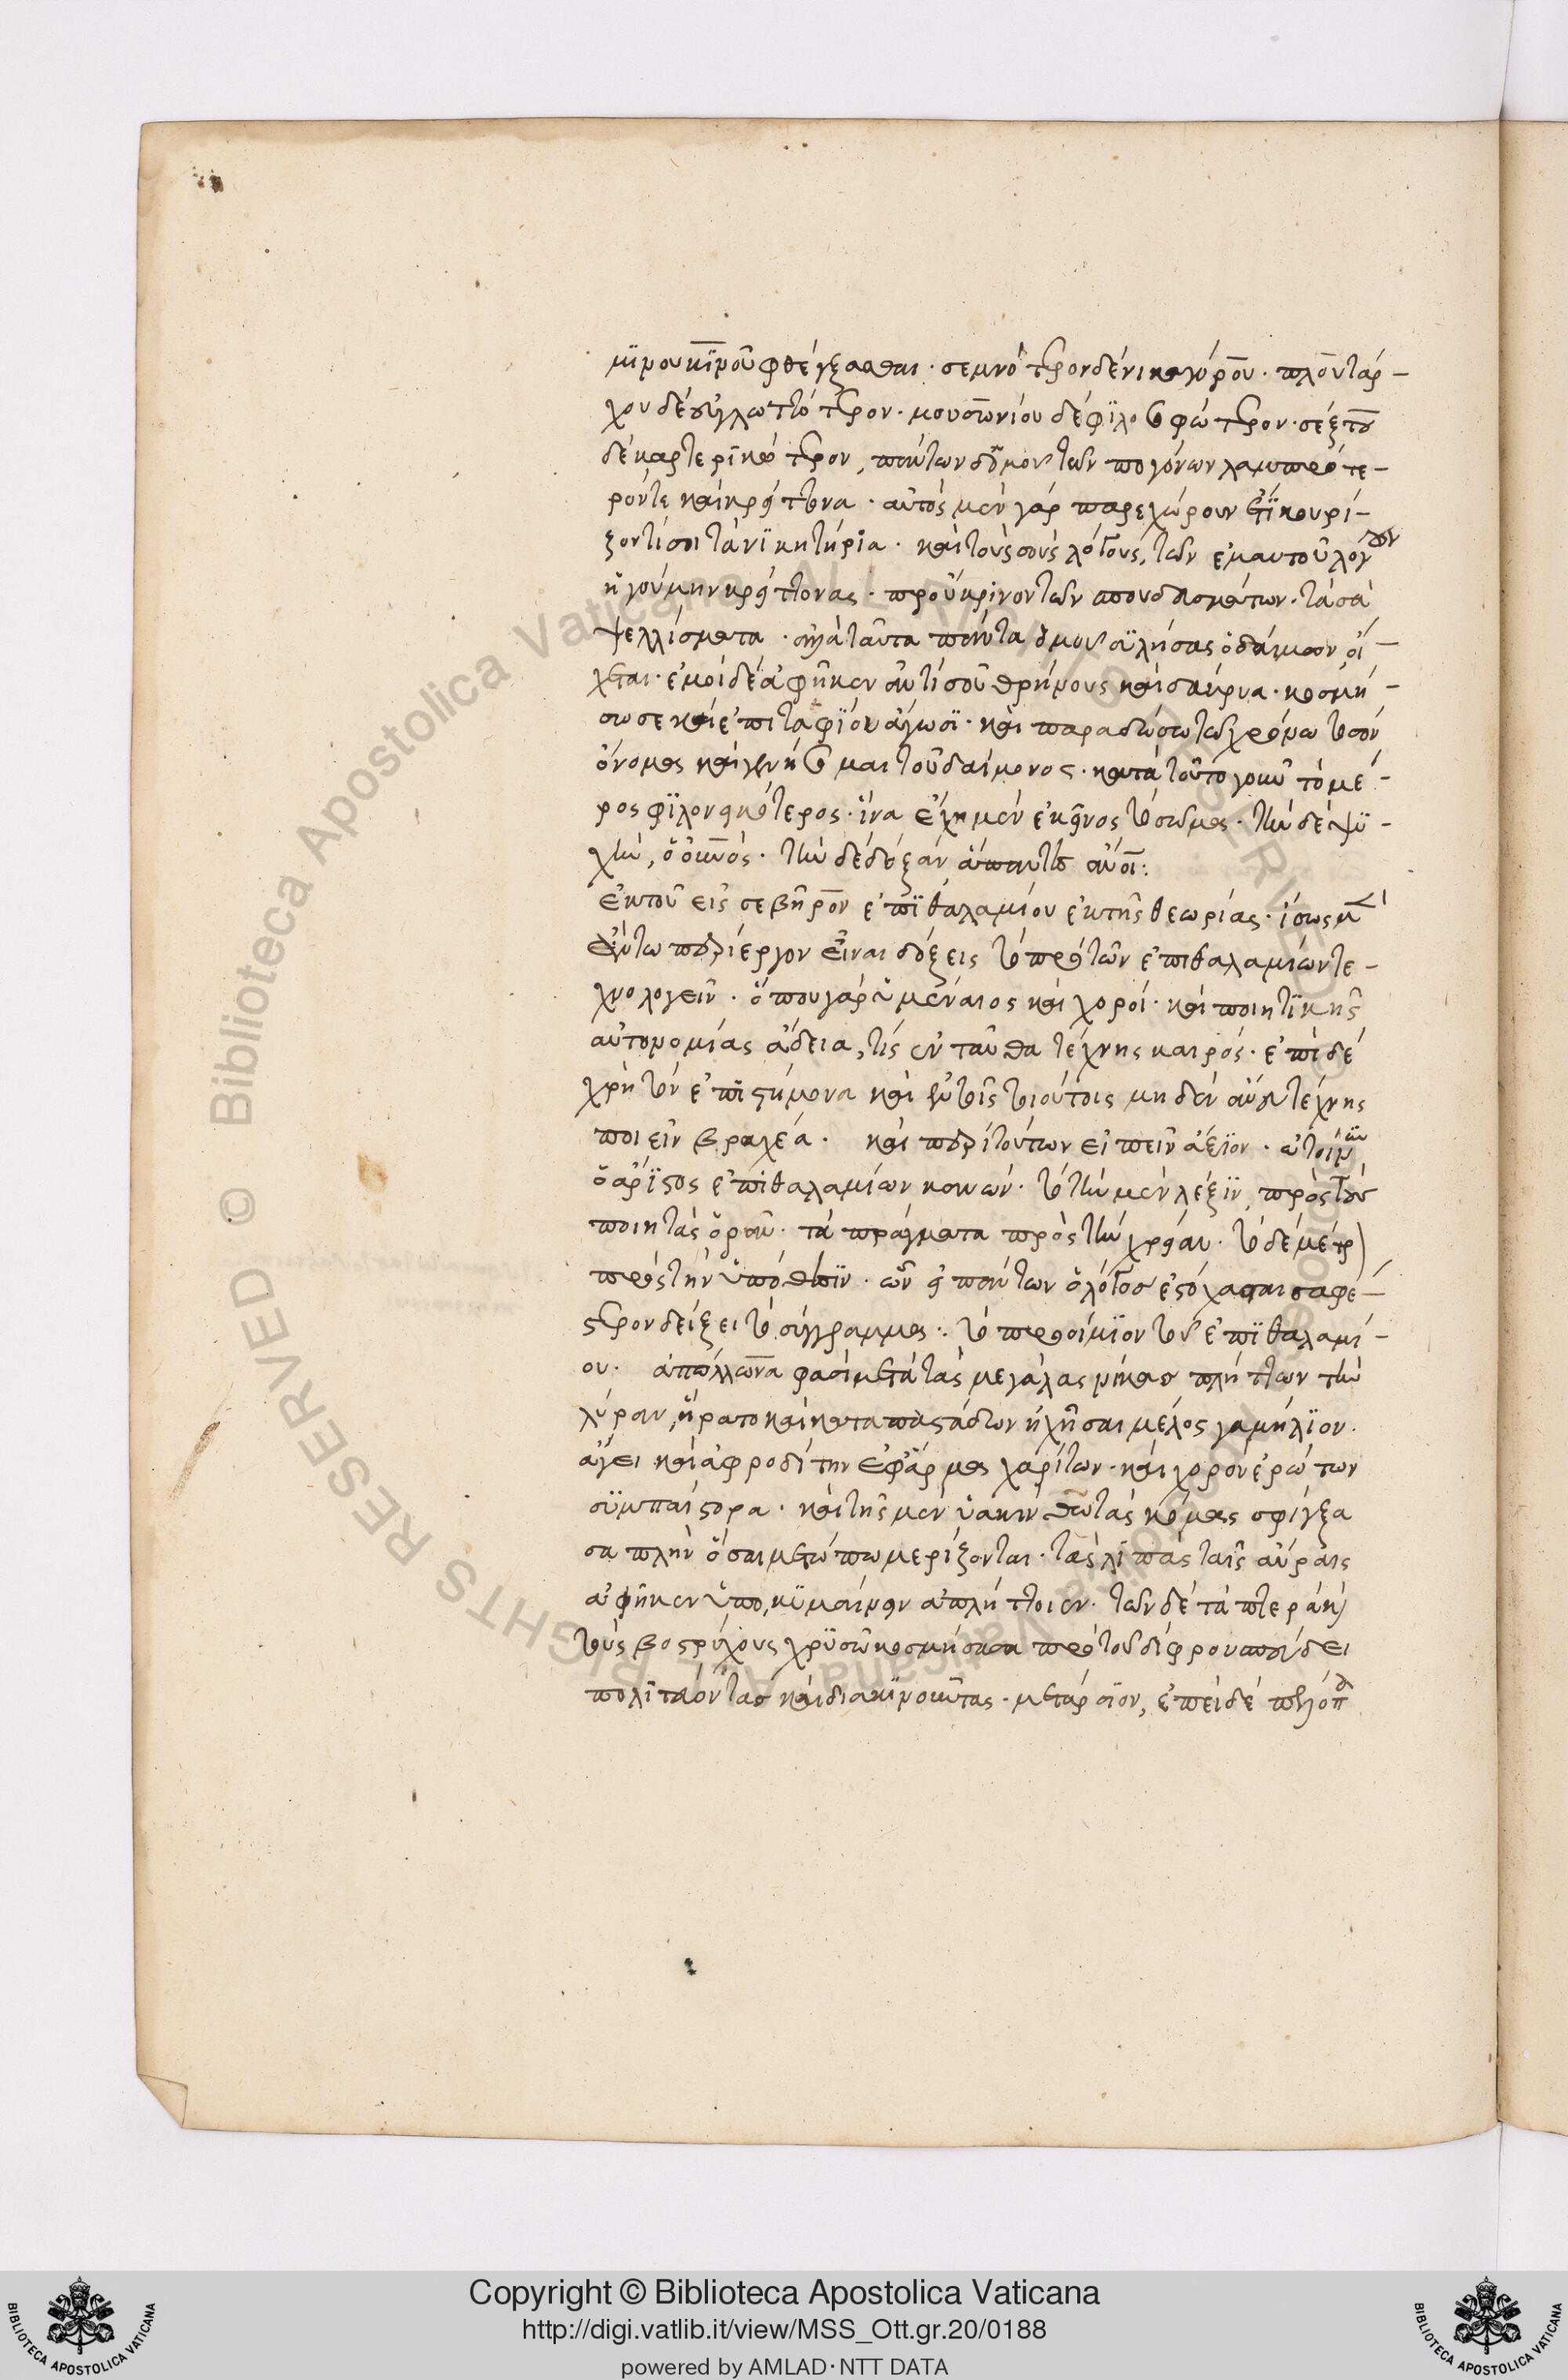 νϊμουκι̅νοῦ φθέγξασθαι· σεμνότερον δὲ νικαγόρου· πλουτάρ-
χου δὲ εὐγλωττότερον· μουσωνίου δὲ φϊλοσοφώτερον· σέξτου
δὲ καρτερϊκώτερον, πάντων δὲ ὁμοῦ τῶν προγόνων λαμπρότε-
ρόν τε καὶ κρείττονα· αὐτὸς μὲν γὰρ παρεχώρουν ἔτϊ κουρί-
ζοντί σοι τὰ νϊκητήρϊα· καὶ τοὺς σοὺς λόγους, τῶν ἐμαυτοῦ λόγων
ἡγούμην κρείττονας· προὔκρινον τῶν σπουδασμάτων· τὰ σὰ
ψελλίσματα· ἀλλὰ ταῦτα πάντα ὁμοῦ συλήσας ὁ δαίμων οἴ-
χεται· ἐμοὶ δὲ ἀφῆκεν ἀντὶ σοῦ θρήνους καὶ δάκρυα· κοσμή-
σω σε καὶ ἐπιταφϊόν ἀγωσϊ· καὶ παραδώσω τῶ χρόνω τὸ σὸν
ὄνομα καὶ γενήσομαι τοῦ δαίμονος· κατὰ τοῦτο γοῦν τὸ μέ-
ρος φϊλονεικότερος· ἵνα ἔχη μὲν ἐκεῖνος τὸ σῶμα· τὴν δὲ ψϋ-
χὴν, ὁ οὐνός· τὴν δὲ δόξαν ἅπαντες ἄνοι:
ἐκ τοῦ εἰς σεβῆρον ἐπϊθαλαμίου ἐκ τῆς θεωρίας· ἴσως μὲν
ἐν τω περίεργον εἶναι δόξεις τὸ περὶ τῶν ἐπιθαλαμίων τε-
χνολογεῖν· ὅπου γὰρ ὑμέναιος καὶ χοροί· καὶ ποιητϊκῆς
αὐτονομίας ἄδεια, τίς ἐνταῦθα τέχνης καιρός· ἐπὶ δὲ
χρὴ τὸν ἐπϊστήμονα καὶ ἐν τοῖς τοιούτοις μηδὲν ἄνευ τέχνης
ποιεῖν βραχέα· καὶ περὶ τούτων εἰπεῖν ἄξϊον· ἔστιν μὲν οὖν
ὁ ἄρϊστος ἐπιθαλαμίων κανών· τὸ τὴν μὲν λέξϊν, πρὸς τοὺς
ποιητὰς ὁρᾶν· τὰ πράγματα πρὸς τὴν χρείαν· τὸ δὲ μέτρ)
πρὸς τὴν ὑπόθεσϊν· ὧν εἰ πάντων ὁ λόγος ἐστόχασται σαφέ-
στερον δείξει τὸ σύγγραμμα·. τὸ προοίμϊον τοῦ ἐπϊθαλαμί-
ου· ἀπόλλωνα φασὶ μετὰ τὰς μεγάλας νίκας πλήττων τὴν
λύραν, ἤρατο καὶ κατα παστάδων ἠχῆσαι μέλος γαμήλϊον·
ἄγει καὶ ἀφροδίτην ἐφ' ἅρμα χαρίτων· καὶ χορὸν ἐρώτων
σϋμπαίστορα· καὶ τῆς μὲν ὑακίνθω τὰς κόμας σφίγξα
σα πλὴν ὅσαι μετώπω μερίζονται· τὰς λϊπὰς ταῖς αὔραις
ἀφῆκεν ὑπο, κϋμαίνειν ἀπλήττοιεν· τῶν δὲ τὰ πτερὰ κ)
τοὺς βοστρύχους χρϋσῶ κοσμήσασα πρὸ τοῦ δίφρου σπεύδει
πολϊταόντας καὶ διακϊνοῦντας· μετάρσϊον, ἐπεὶ δὲ πλησϊον